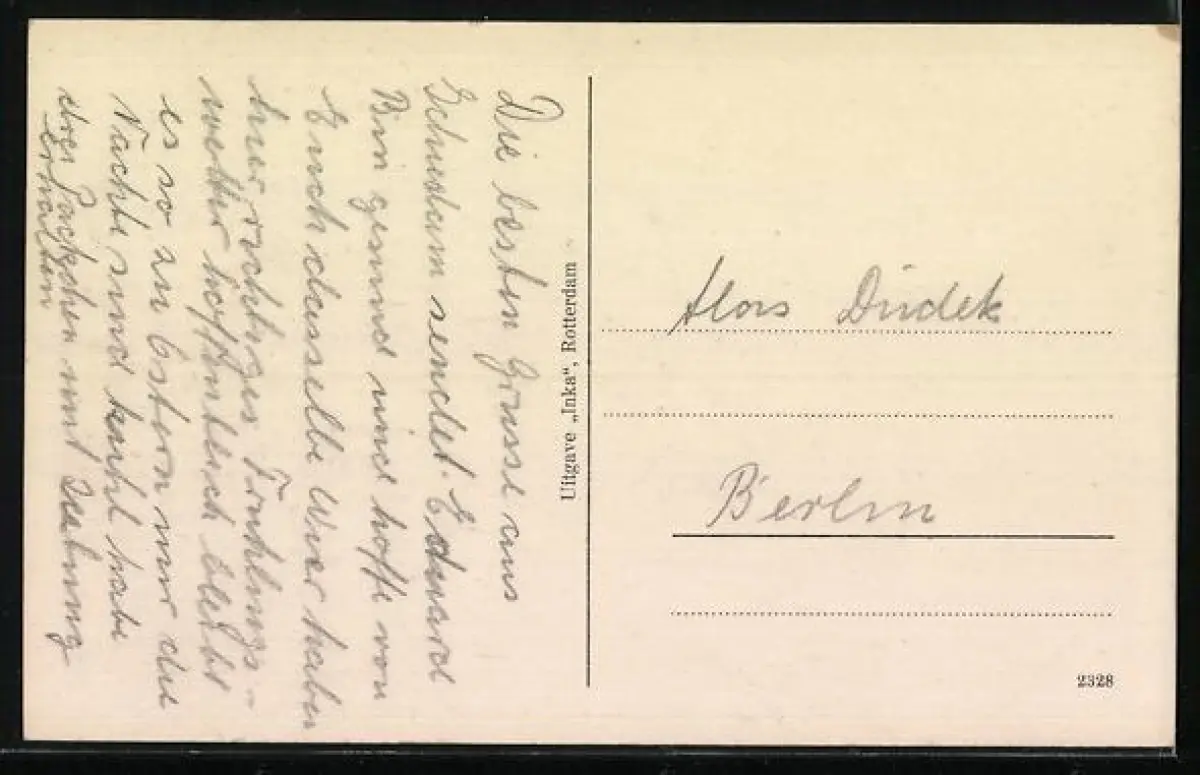 Die besten Grüsse aus
Schiedam sendet. Eduard
Bin gesund und hoffe von
Euch dasselbe Wier haben
hier richtiges Frühlings-
wetter hoffentlich bleibt
es so zu Ostern nur die
Nächte sind kühl habe
drei Päckchen mit
erhalten
Uitgave „Inka“, Rotterdam
Alois Dudek
Berlin
2328